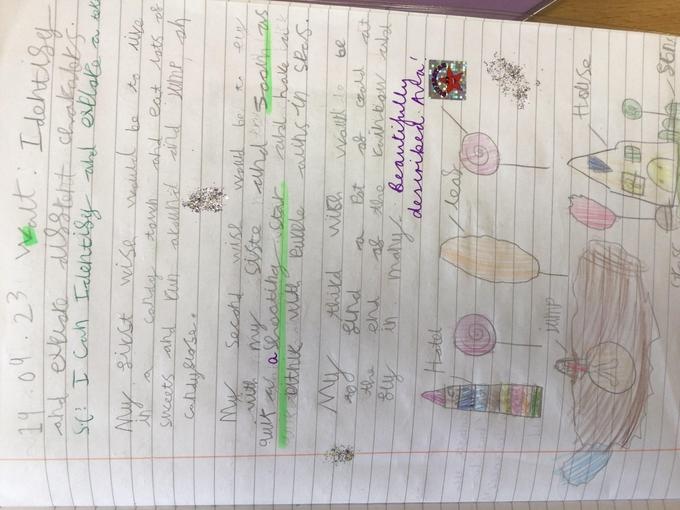 19.04.23 Walt: Identify
and explore disstint charakters.
SC: I can Identify and explore a
My first wise would be to live
in a candy town and eat lots of
sweets and run around and jump on
candyflose.
My second wise would be to
with my siste and soon as
quik as a shooting star and have
with purple
My thild wish would be
to find a Pot of Gold at
the end of the rainbow and
fly in many.
Beautifully
described Aita!
House
leas
Hotel
Jump